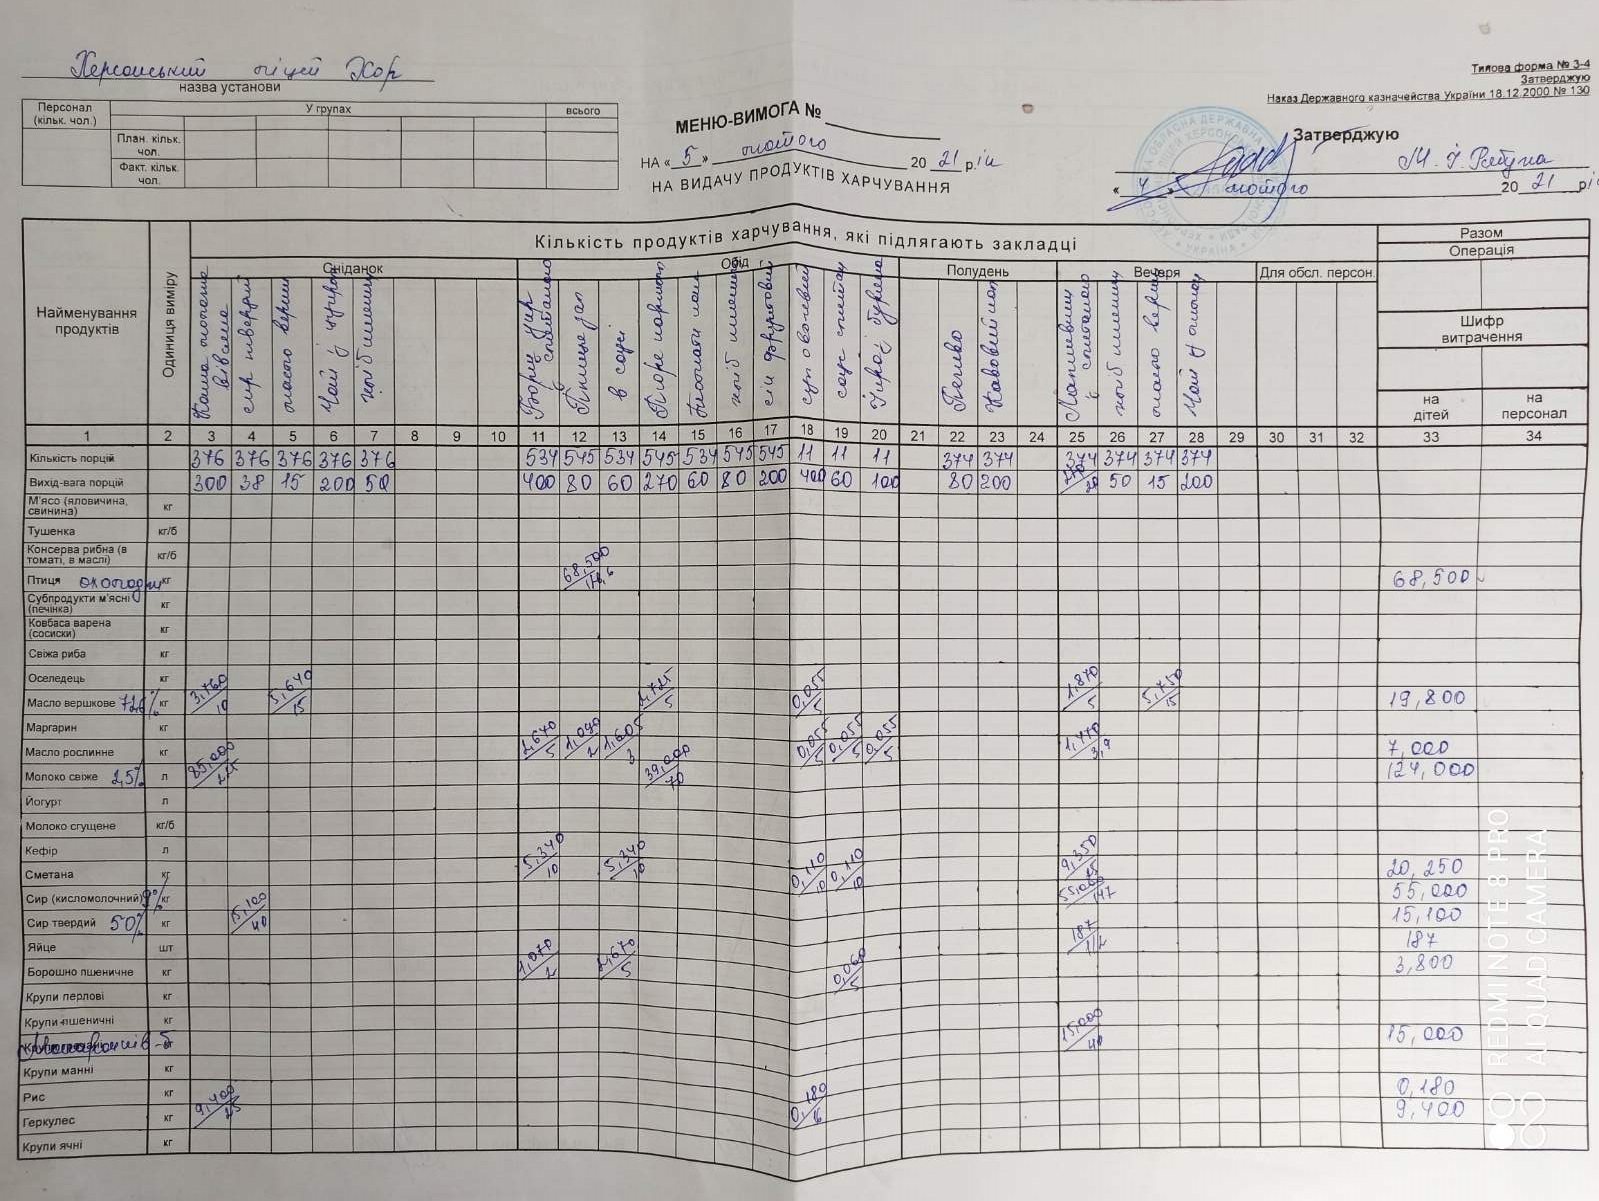 Херсонський ліцей ХОР
назва установи
Типова форма № 3-4
Затверджую
Наказ Державного казначейства України 18.12.2000 № 130
Персонал (кільк. чол.) У групах всього
План. кільк. чол.
Факт. кільк. чол.
МЕНЮ-ВИМОГА №
НА « 5 » лютого 20 21 р.
НА ВИДАЧУ ПРОДУКТІВ ХАРЧУВАННЯ
Затверджую
« 4 » лютого 20 21
Кількість продуктів харчування, які підлягають закладці
Разом
Операція
Шифр витрачення
на дітей
на персонал
Найменування продуктів
Одиниця виміру
Сніданок Обід Полудень Вечеря Для обсл. персон.
сир твердий
масло вершк
хліб пшенич
в соусі
Печиво
1 2 3 4 5 6 7 8 9 10 11 12 13 14 15 16 17 18 19 20 21 22 23 24 25 26 27 28 29 30 31 32 33 34
Кількість порцій 376 376 376 376 376 534 545 534 545 534 545 545 11 11 11 374 374 374 374 374 374
Вихід-вага порцій 300 38 15 200 50 400 80 60 270 60 80 200 400 60 100 80 200 50 15 200
М'ясо (яловичина, свинина) кг
Тушенка кг/б
Консерва рибна (в томаті, в маслі) кг/б
Птиця охолодж кг 68,500 68,500
Субпродукти м'ясні (печінка) кг
Ковбаса варена (сосиски) кг
Свіжа риба кг
Оселедець кг
Масло вершкове 72,6% кг 3,760/10 5,640/15 2,725/5 0,055/5 1,870/5 5,750/15 19,800
Маргарин кг
Масло рослинне кг 2,670/5 1,090/2 1,605/3 0,055/5 0,055/5 0,055/5 1,470/3,9 7,000
Молоко свіже 2,5% л 85,000 39,000/70 124,000
Йогурт л
Молоко сгущене кг/б
Кефір л
Сметана кг 5,340/10 5,340/10 0,110/10 0,110/10 9,350/25 20,250
Сир (кисломолочний) 9% кг 55,000/147 55,000
Сир твердий 50% кг 15,100/40 15,100
Яйце шт 187/1/2 187
Борошно пшеничне кг 1,070/2 2,670/5 0,060/5 3,800
Крупи перлові кг
Крупи пшеничні кг
кг 15,000/40 15,000
Крупи манні кг
Рис кг 0,180/16 0,180
Геркулес кг 9,400/25 9,400
Крупи ячні кг
REDMI NOTE 8 PRO
AI QUAD CAMERA